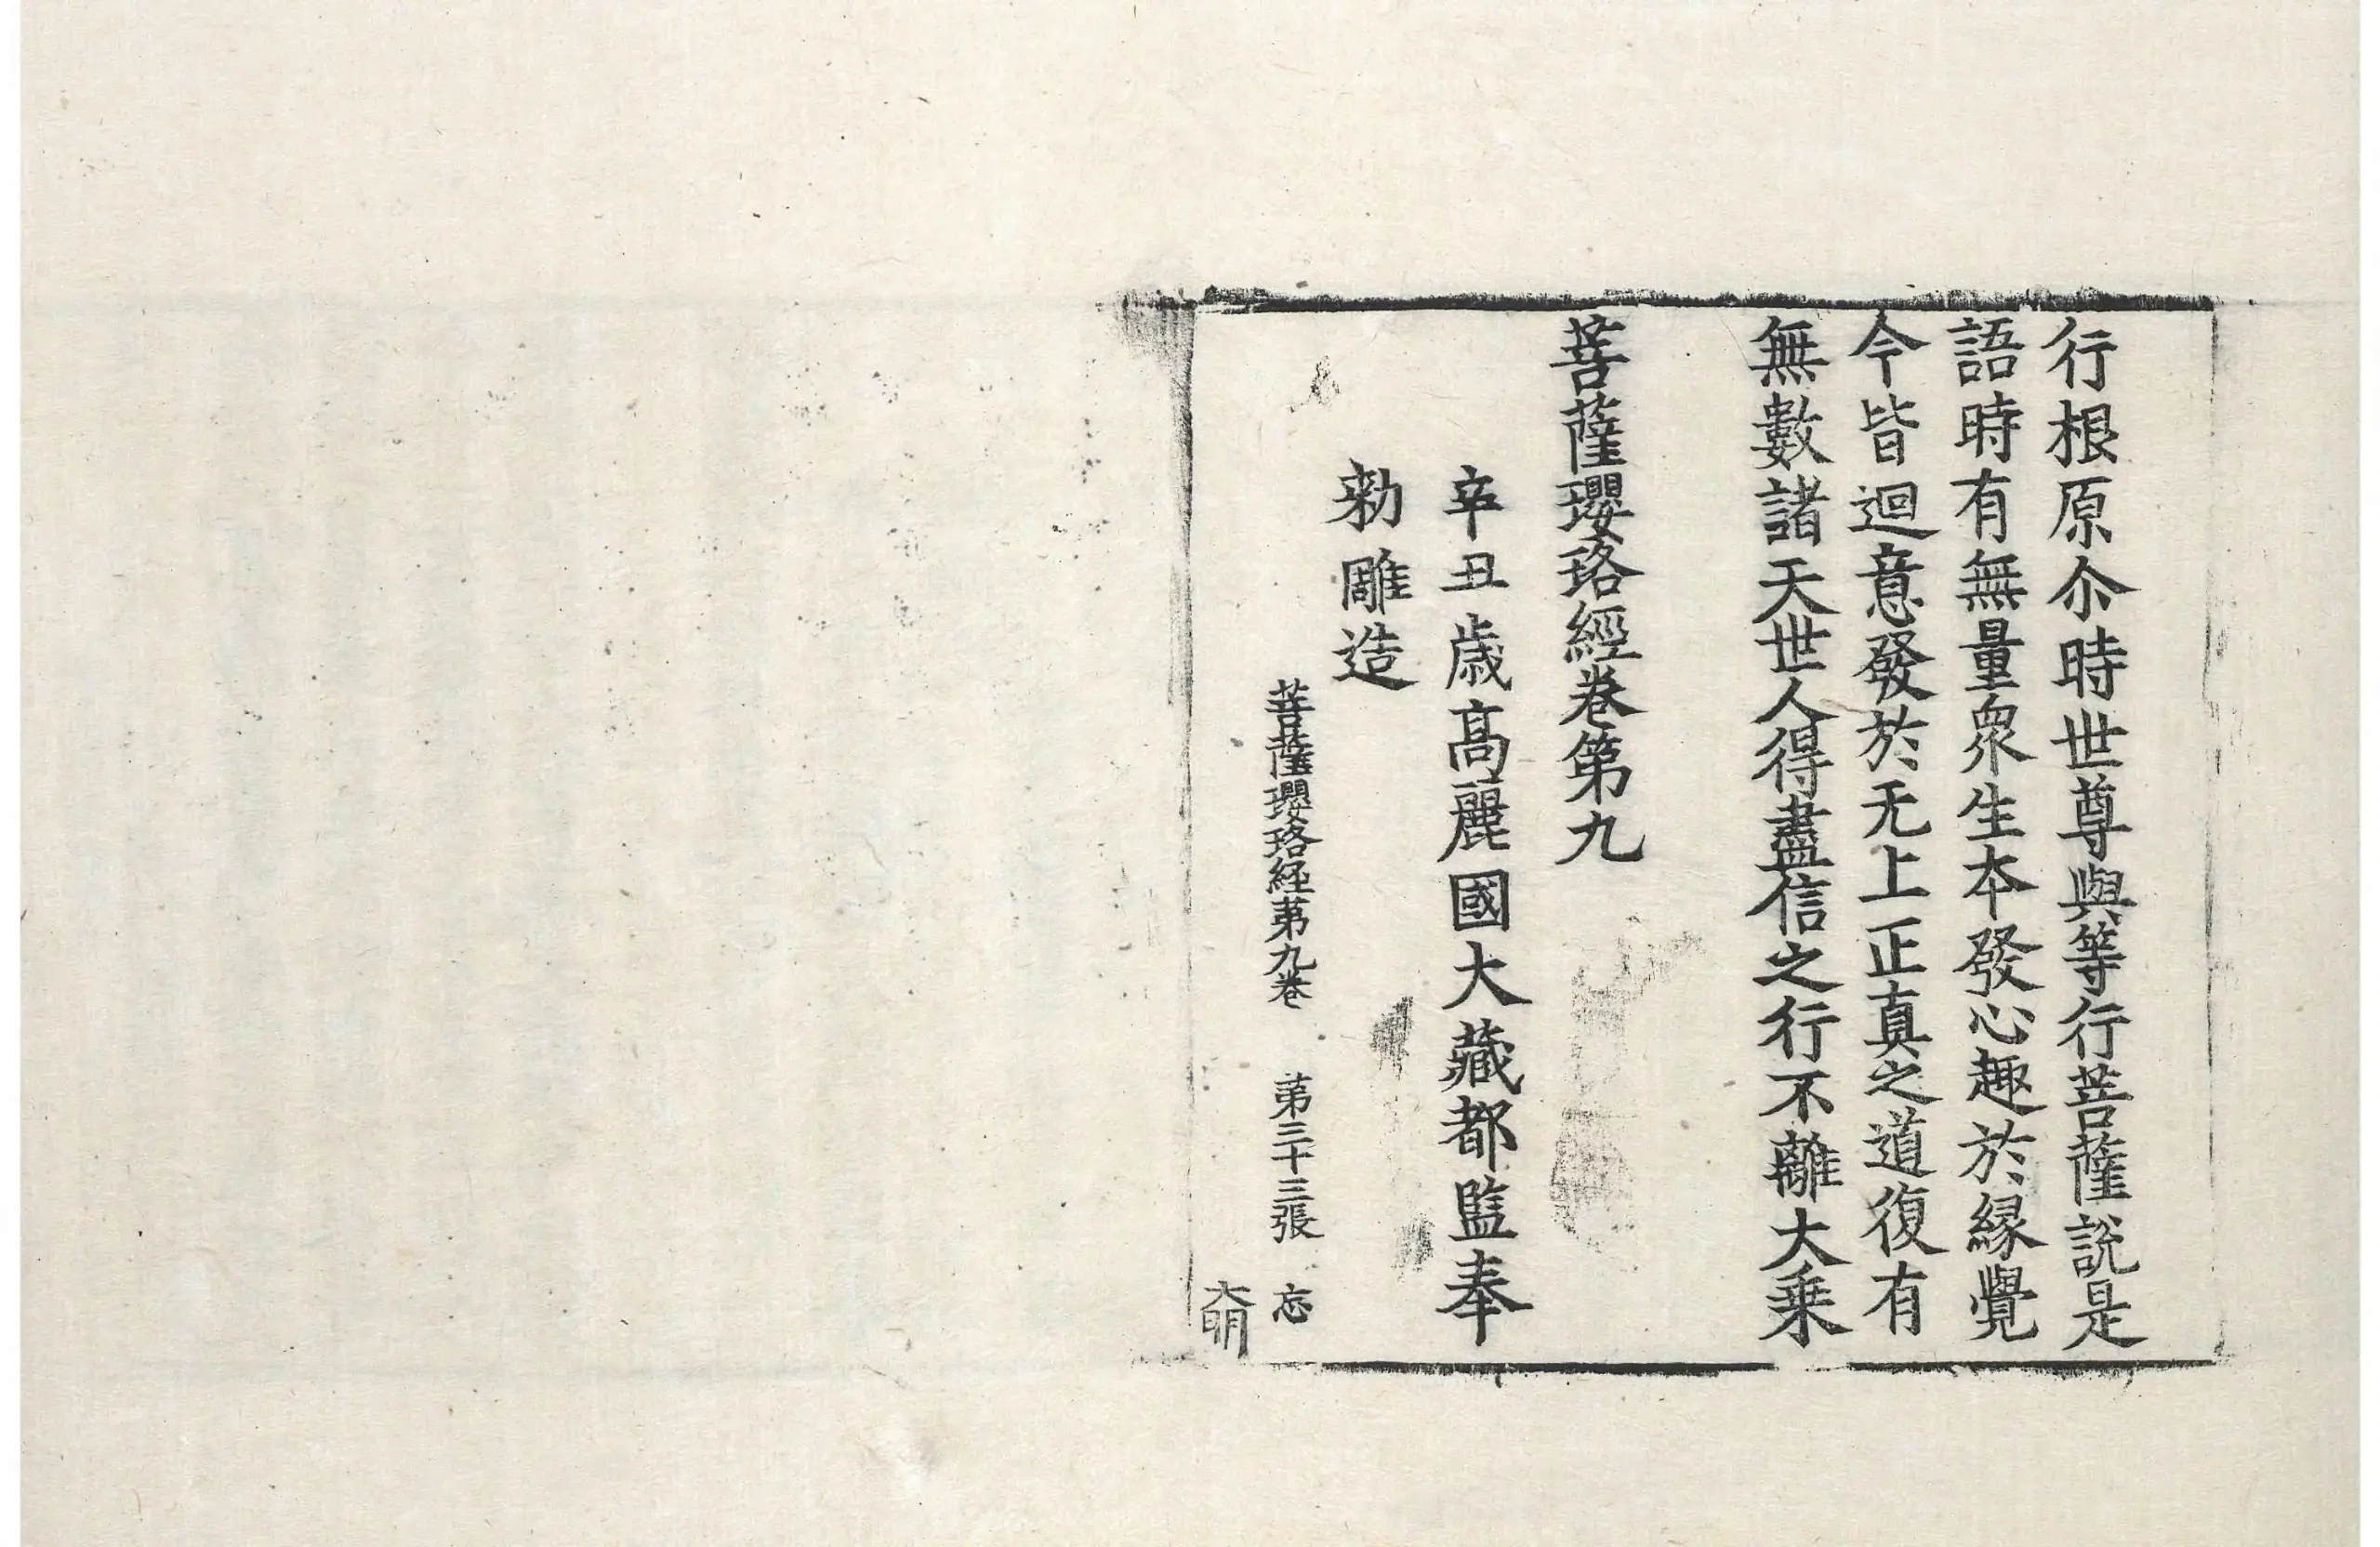 行根原尒時世尊與等行菩薩說是
語時有無量衆生本發心趣於緣覺
今皆迴意發於无上正真之道復有
無數諸天世人得盡信之行不離大乗
菩薩瓔珞經卷第九
辛丑歳髙麗國大藏都監奉
勅雕造
菩薩瓔珞経苐九卷 苐三十三張 忘
大明